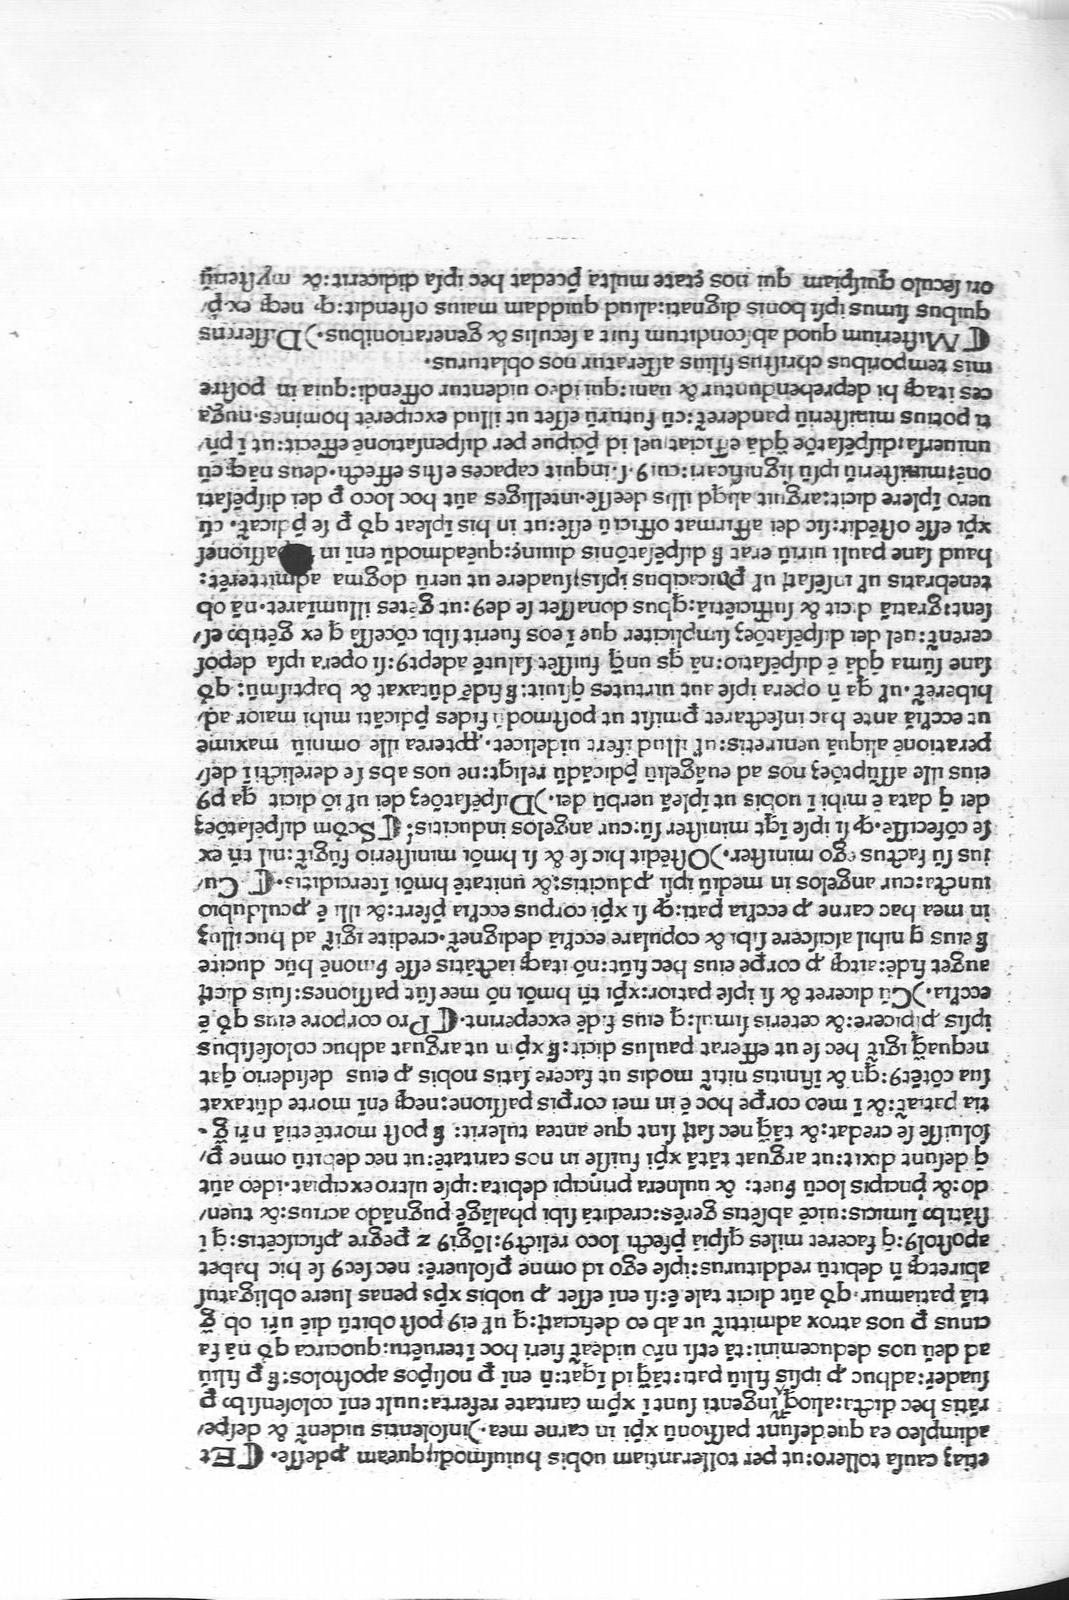 etiaꝫ causa tollero: ut per tollerantiam uobis huiusmodi queam ꝓdesse. ⸿ Et
adimpleo ea que desunt passionū xp̄i in carne mea.) insolentis uident̄ & despe/
rātis hec dicta: alioq̄ ingenti sunt ī xp̄m caritate referta: uult enī colosensibꝰ ꝑ
suader: adhuc ꝓ ipsis filiū pati: tāq̄ id īqat: n̄ enī ꝑ nosip̄os apostolos: sꝫ ꝑ filiū
ad deū nos deducemini: tā etsi nr̄o uideat̄ fieri hoc īteruētu: quocirca qd̄ nā fa
cinus ꝑ uos atrox admittit̄ ut ab eo deficiat̄: q̄ uł eiꝰ post obitū die ur̄i ob g̃
tiā patiamur. qd̄ aūt dicit tale ē: si enī esset ꝓ uobis xp̄s penas luere obligatus
abiretq̄ n̄ debitū redditurus: ipse ego id omne ꝑsoluerē: nec secꝰ se hic habet
apostolꝰ: q̄ faceret miles q̄spiā ꝑfecti loco relictꝰ: lōgiꝰ ⁊ ꝑegre ꝓficiscētis: q ī
stātibꝰ īimicus: uicē absētis gerēs: credita sibi phalāgē pugnādo acrius: & tuen/
do: & pncipis locū fuet: & uulnera principi debita: ipse ultro excipiat. ideo aūt
q̄ desunt dixit: ut arguat tātā xp̄i fuisse in nos caritatē: ut nec debitū omne ꝑ/
soluisse se credat: & tāq̄ nec sat̄ sint que antea tulerit: sꝫ post mortē etiā nr̄i g̃
tia patiat̄: & ī meo corꝑe hoc ē in mei corꝑis passione: neq̄ enī morte dūtaxat
sua cōtētꝰ: qn̄ & īfinitis nitit̄ modis ut facere satis nobis ꝓ eius desiderio qat
nequaq̄ igit̄ hec se ut efferat paulus dicit: sꝫ xp̄m ut arguat adhuc colosesibus
ipsis ꝓspicere: & ceteris simul: q̄ eius fidē exceperint. ⸿ Pro corpore eius qd̄ ē
ecclīa.) Cū diceret & si ipse patior: xp̄i tn̄ hmōi nō mee sūt passiones: suis dict̄
auget fidē: aitq̄ ꝓ corꝑe eius hec fiūt: nō itaq̄ iactātis esse s̄monē hūc ducite
sꝫ eius q nihil asciscere sibi & copulare ecclīa dedignet̄. credite igit̄ ad huc illuꝫ
in mea hac carne ꝓ ecclīa pati: q̄ si xp̄i corpus ecclīa ꝓfert: & illi ē ꝓculdubio
iuncta: cur angelos in mediū ipsi ꝓducitis: & unitatē hmōi īterciditis. ⸿ Cu/
ius sū factus ego minister.) Ostēdit hic se & si hmōi ministerio fūgit̄: nil tn̄ ex
se cōfecisse. q̄ si ipse īqt minister sū: cur angelos inducitis? ⸿ Scdm dispēsatōeꝫ
dei q̄ data ē mihi ī uobis ut īpleā uerbū dei.) Dispēsatōeꝫ dei uł iō dicit qa pꝰ
eius ille assūptōeꝫ nos ad euāgeliū p̄dicādū reliqt: ne uos abs se derelictīri des/
peratione aliquā ueniretis: uł illud ifert uidelicet. ꝓpterea ille omniū maxime
ut ecclīā ante hac insectaret ꝑmisit ut postmodū fides p̄dicāti mihi maior ad/
hiberet̄. uł qa n̄ opera ipse aut uirtutes q̄siuit: sꝫ fidē dūtaxat & baptismū: qd̄
sane sūma q̄dā ē dispēsatio: nā q̄s unq̄ fuisset salutē adeptꝰ: si opera ipsa depos
cerent̄: uel dei dispēsatōeꝫ simpliciter que ī eos fuerit sibi cōcessa q ex gētibꝰ es/
sent: gratiā dicit & sufficiētiā: q̄bus donasset se deꝰ: ut gētes illumiaret. nā ob
tenebratis uł insēsat̄ uł ꝑuicacibus ipsis suadere ut uerū dogma admitterēt:
haud sane pauli uiriū erat sꝫ dispēsatōnis diuinę: quēadmodū enī in passiones
xp̄i esse ostēdit: sic dei affirmat officiū esse: ut in his īpleat qd̄ ꝑ se p̄dicat̄. cū
uero īplere dicit: arguit aliqd illis deesse. intelliges aūt hoc loco ꝑ dei dispēsati
onē: ministeriū ipsū significari: cuiꝰ. s. inquit capaces estis effecti. deus nāq̄ cū
uniuersa: dispēsatōe q̄dā efficiat uel id p̄cipue per dispensationē effecit: ut ī pn̄/
ti potius ministeriū panderet̄: cū futurū esset ut illud exciperēt homines. nuga
ces itaq̄ hi deprehenduntur & uani: qui ideo uidentur offendi: quia in postre
mis temporibus christus filius asseratur nos oblaturus.
⸿ Misterium quod absconditum fuit a seculis & generationibus.) Differens
quibus simus ipsi bonis dignati: aliud quiddam maius ostendit: q̄ neq̄ ex p̄/
ori seculo quispiam qui nos etate multa p̄cedat hec ipsa didicerit: & mysteriū